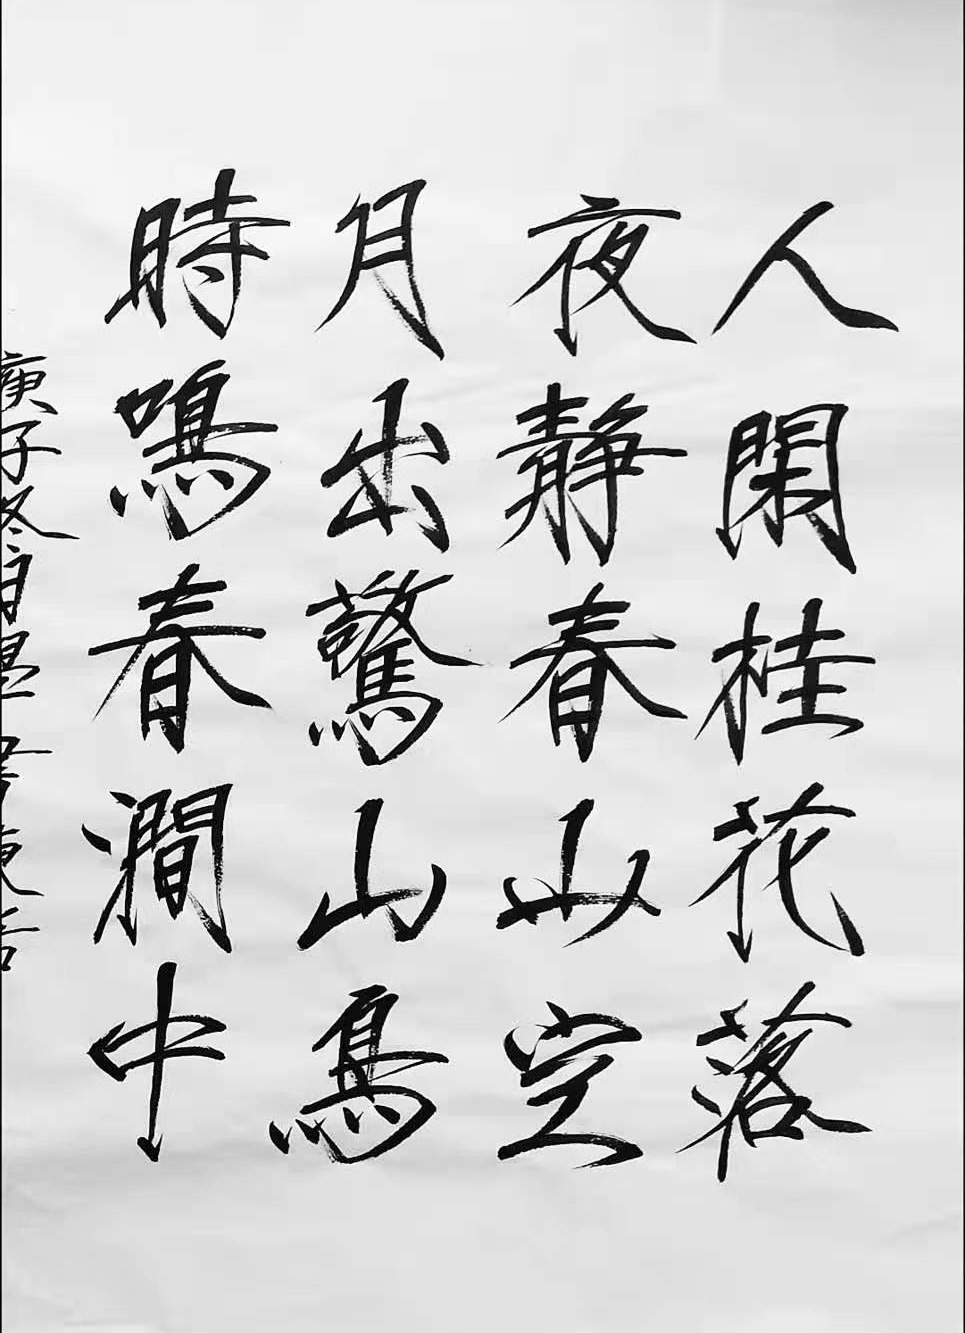 人閑桂花落
夜静春山空
月出驚山鳥
時鳴春澗中
庚子冬月墨書